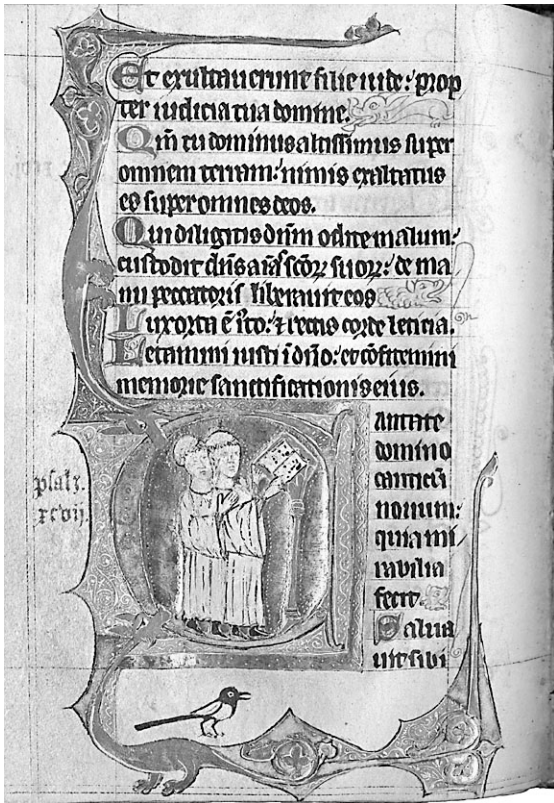 Et exultauerunt filie iude: prop
ter iudicia tua domine.
Qm̄ tu dominus altissimus super
omnem terram: nimis exaltatus
es super omnes deos.
Qui diligitis dn̄m odite malum:
custodit dn̄s aīas scōꝝ suoꝝ: de ma
nu peccatoris liberauit eos
Lux orta ē iſto: ⁊ rectis corde leticia.
Letamini iusti ī dn̄o: et cōfitemini
memorie sanctificationis eius.
Cantate
domino
canticū
nouum:
quia mi
rabilia
fecit.
Salua
uit sibi
psalꝫ.
xcvij.